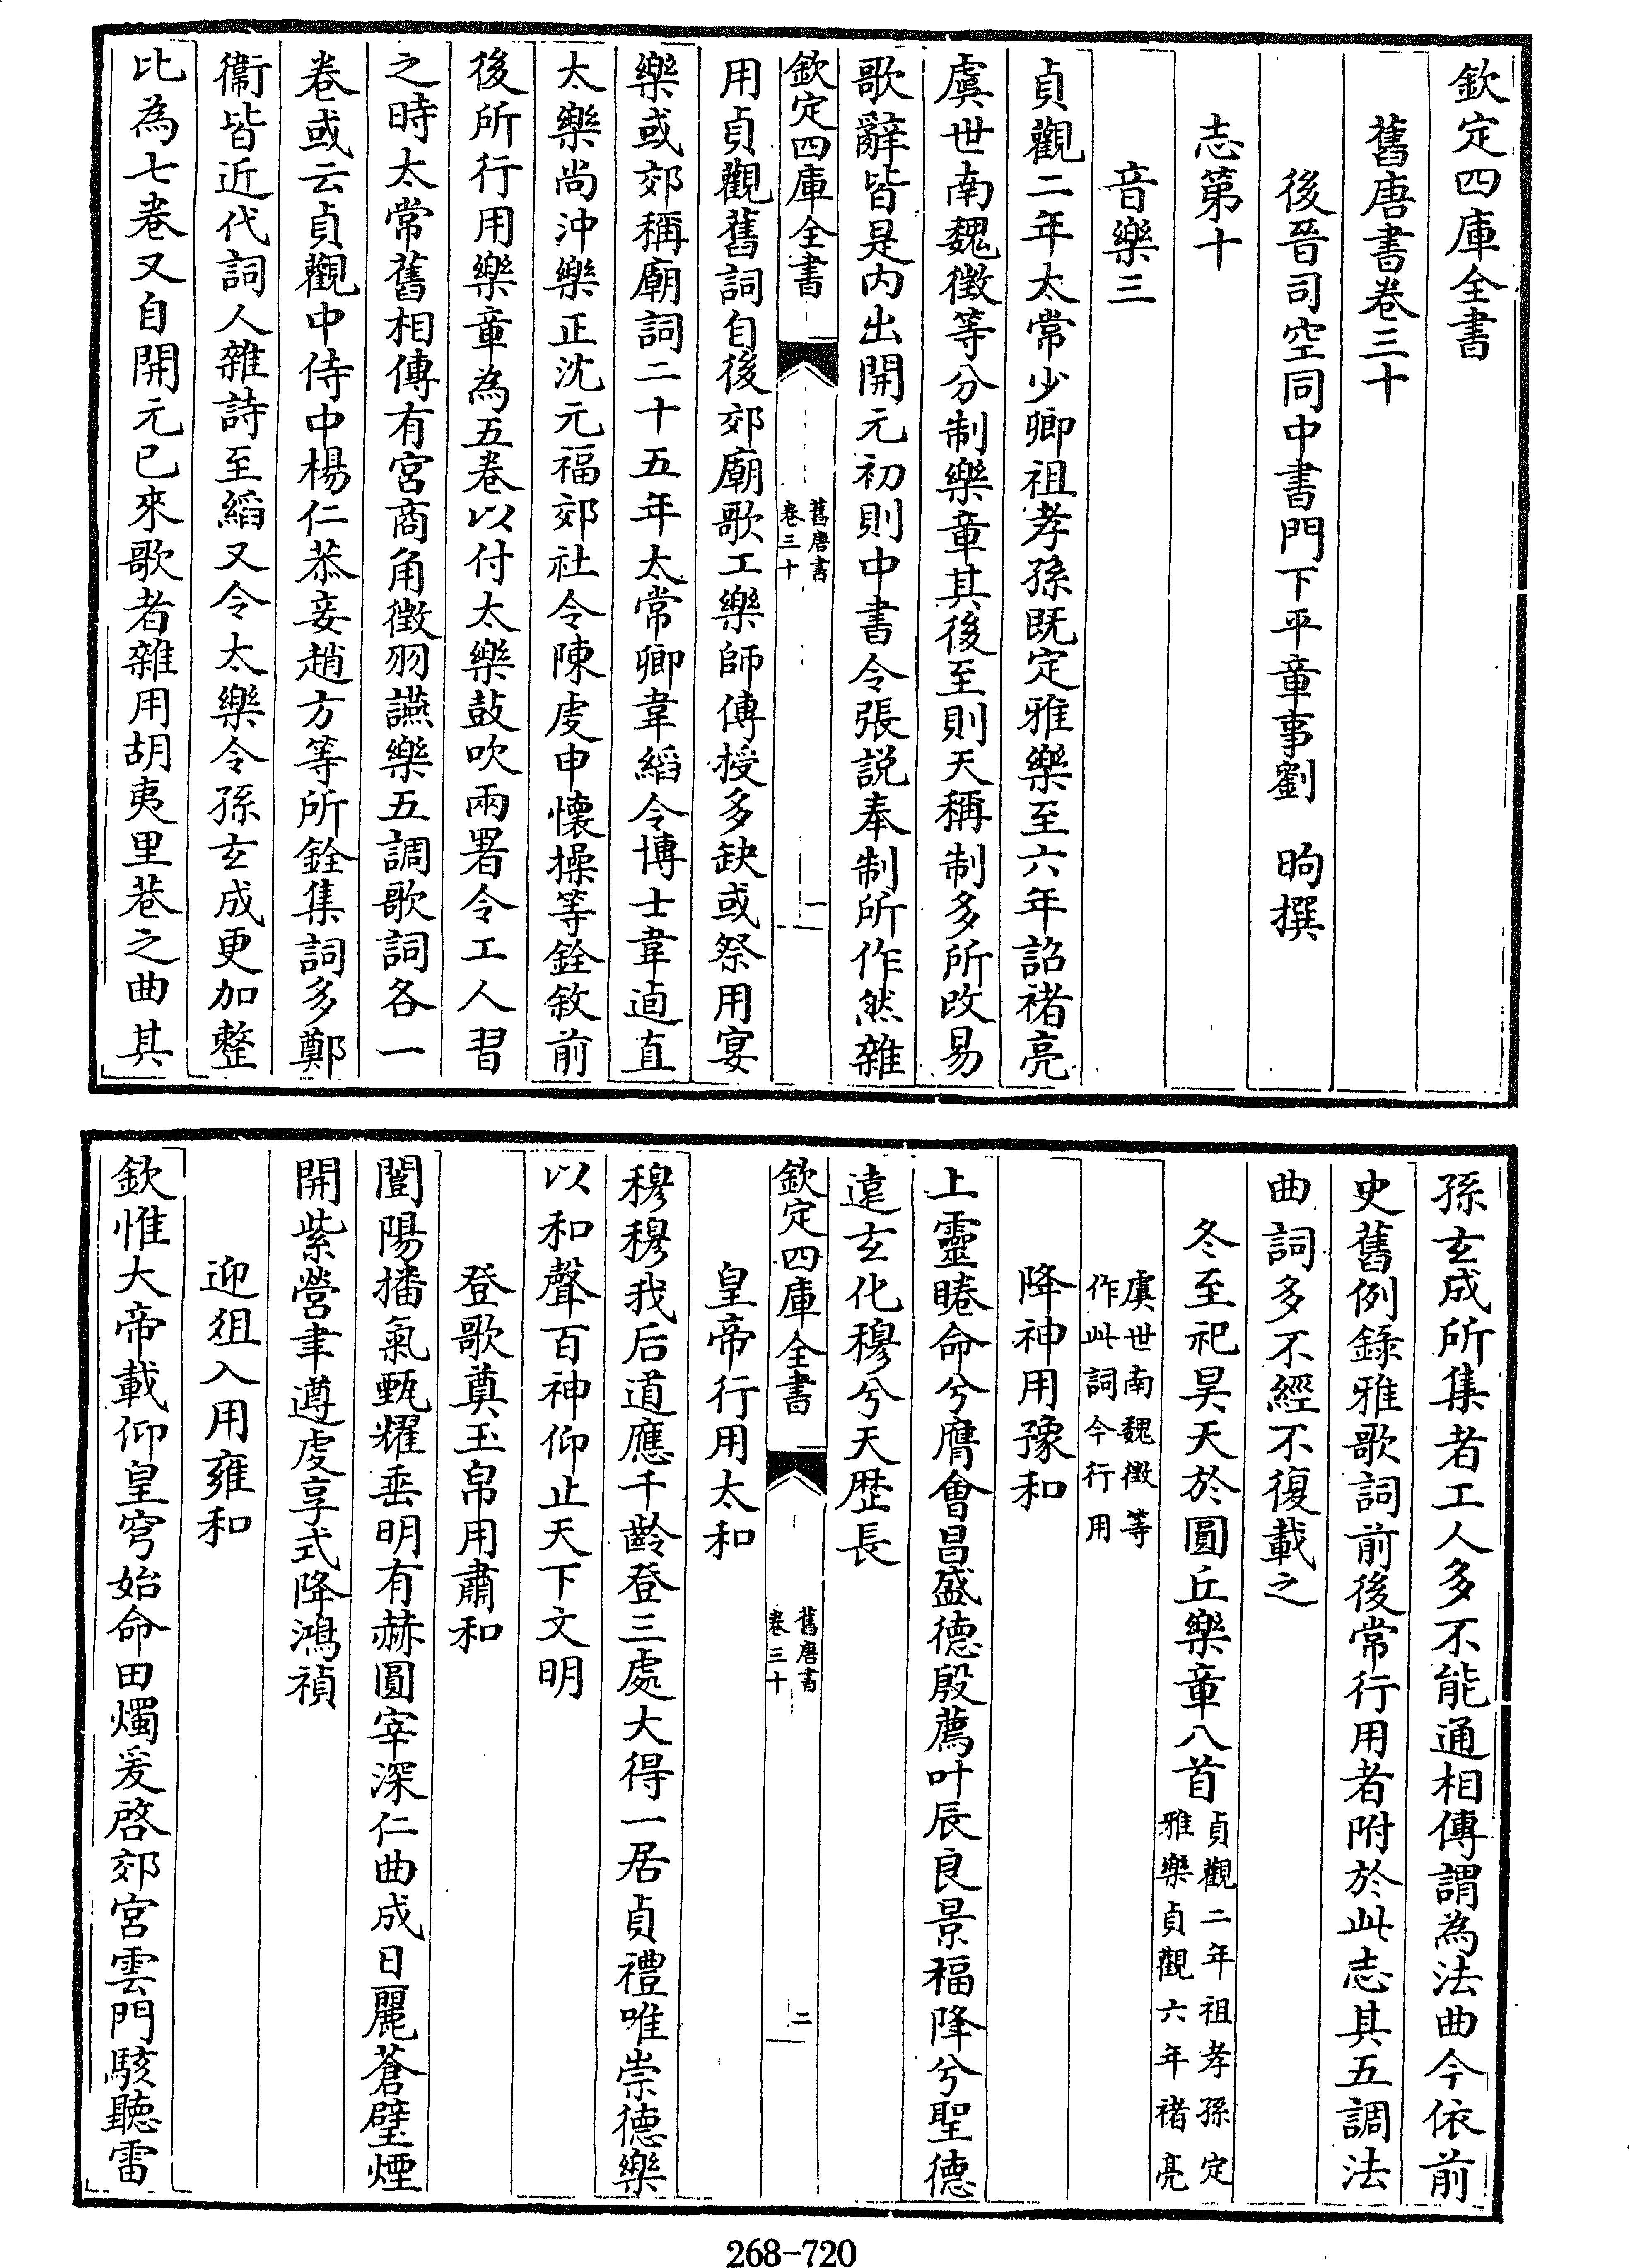 欽定四庫全書
舊唐書卷三十
後晉司空同中書門下平章事劉　昫撰
志第十
音樂三
貞觀二年太常少卿祖孝孫既定雅樂至六年詔禇亮
虞世南魏徵等分制樂章其後至則天稱制多所改易
歌辭皆是内出開元初則中書令張説奉制所作然雜
欽定四庫全書
舊唐書
卷三十
一
用貞觀舊詞自後郊廟歌工樂師傳授多缺或祭用宴
樂或郊稱廟詞二十五年太常卿韋縚令博士韋逌直
太樂尚沖樂正沈元福郊社令陳虔申懷操等銓敘前
後所行用樂章為五卷以付太樂鼓吹兩署令工人習
之時太常舊相傳有宮商角徵羽讌樂五調歌詞各一
卷或云貞觀中侍中楊仁恭妾趙方等所銓集詞多鄭
衞皆近代詞人雜詩至縚又令太樂令孫玄成更加整
比為七卷又自開元已來歌者雜用胡夷里巷之曲其
孫玄成所集者工人多不能通相傳謂為法曲今依前
史舊例錄雅歌詞前後常行用者附於此志其五調法
曲詞多不經不復載之
冬至祀昊天於圓丘樂章八首貞觀二年祖孝孫定
雅樂貞觀六年禇亮
虞世南魏徵等
作此詞今行用
降神用豫和
上靈睠命兮膺會昌盛德殷薦叶辰良景福降兮聖德
遠玄化穆兮天歷長
欽定四庫全書
舊唐書
卷三十
二
皇帝行用太和
穆穆我后道應千齡登三處大得一居貞禮唯崇德樂
以和聲百神仰止天下文明
登歌奠玉帛用肅和
闓陽播氣甄耀垂明有赫圓宰深仁曲成日麗蒼璧煙
開紫營聿遵虔享式降鴻禎
迎俎入用雍和
欽惟大帝載仰皇穹始命田燭爰啓郊宮雲門駭聽雷
268-720